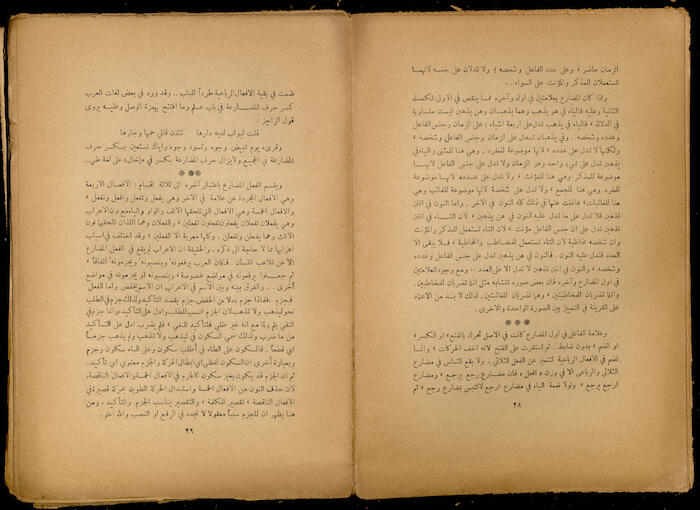 الزمان حاضر ، وعلى عدد الفاعل وشخصه ؛ ولا تدلان على جنسه لانهما
تستعملان للمذكر والمؤنث على السواء . .
واذا كان المضارع بعلامتين في اوله وآخره فما ينقص في الاولى تكمله
الثانية وعليه فالياء في هو يذهب وهما يذهبان وهن يذهبن ليست متساوية
في الدلالة ؛ فالياء في يذهب تدل على اربعة اشياء : على الزمان وجنس الفاعل
وعدده وشخصه . وفي يذهبان تدل على الزمان وجنس الفاعل وشخصه ،
ولكنها لا تدل على عدده ، لانها موضوعة للمفرد . وهي هنا للمثنى والياء في
يذهبن تدل على شيء واحد وهو الزمان ولا تدل على جنس الفاعل لانها
موضوعة للمذكر وهي هنا للمؤنث ، ولا تدل على عدده لانها موضوعة
للمفرد وهي هنا للجمع ، ولا تدل على شخصه لانها موضوعة للغائب وهي
هنا للغائبات، فاغنت عنها في ذلك كله النون في الآخر . واما في انتن
تذهبن فلا تدل على ما تدل عليه النون في هن يذهبن ، لان التاء في انتن
تذهبن تدل على ان جنس الفاعل مؤنث ، لان التاء تستعمل للمذكر والمؤنث
وان شخصه مخاطبة لان التاء تستعمل للمخاطب والمخاطبة ، فلا يبقى الا
العدد فتدل عليه النون. فالنون في هن يذهبن تدل على جنس الفاعل وعدده
وشخصه ، والنون في انتن تذهبن لا تدل الا على العدد .. ومع وجود العلامتين
في اول المضارع وآخره فان بعض صوره تتشابه مثل انتما تضربان للمخاطبين ،
وانتما تضربان للمخاطبتين ، وهما تضربان للغائبتين. لذلك لا بد من الاعتماد
على القرينة في التمييز بين الصورة الواحدة والاخرى .
❋ ❋ ❋
وعلامة الفاعل في اول المضارع كانت في الاصل تحرك بالفتح ، او الكسر،
او الضم ، بدون ضابط . ثم استقرت على الفتح لانه اخف الحركات ، وانما
تضم في الافعال الرباعية لتتميز عن الفعل الثلاثي . ولا يقع التباس في مضارع
الثلاثي والرباعي الا في وزن « افعل » فان مضارع رجع يرجع ، ومضارع
ارجع يرجع ، ولولا ضمة الياء في مضارع ارجع لالتبس بمضارع رجع ، ثم
٢٨
ضمت في بقية الافعال الرباعية طرداً للباب .. وقد ورد في بعض لغات العرب
كسر حرف المضارعة في باب علم وما افتتح بهمزة الوصل وعليه يروى
قول الراجز :
قلت لبواب لديه دارها تئذن فاني حموها وجارها
وقرىء يوم تبيض وجوه وتسود وجوه واياك نستعين بكسر حرف
المضارعة في الجميع. ولا يزال حرف المضارعة يكسر في «إخال» على لغة طي..
❋ ❋ ❋
ويقسم الفعل المضارع باعتبار آخره الى ثلاثة اقسام : الافعال الاربعة
وهي الافعال المجردة عن علامة في الآخر وهي يفعل وتفعل وافعل ونفعل ،
والافعال الخمسة وهي الافعال التي تلحقها الالف والواو والياء مع نون الاعراب
وهي يفعلان تفعلان يفعلون تفعلون تفعلين ، والفعلان وهما اللذان تلحقها نون
الاناث وهما يفعلن وتفعلن . وكلها معربة الا الفعلين ، وقد اختلف في اسباب
اعرابها مما لا حاجة الى ذكره . والحقيقة ان الاعراب لم يقع في الفعل المضارع
الا عن تلاعب اللسان . فكان العرب يرفعونه وينصبونه ويجزمونه اتفاقاً ،
ثم جعلوا يرفعونه في مواضع مخصوصة ، وينصبونه او يجزمونه في مواضع
أخرى .. والفرق بينه وبين الاسم في الاعراب ان الاسم يخفض واما الفعل
فيجزم . فلماذا جزم بدلا من الخفض. جزم بقصد التأكيد ولذلك جزم في الطلب
نحو ليذهب ولا تذهب لان الجزم انسب للطلب وادل على التأكيد وانما جزم في
النفي بلم ولما مع انه غير طلبي فلتأكيد النفي ، فلم يضرب ادل على التأكيد
من ما ضرب ولذلك سمي السكون في ليذهب ولا تذهب ولم يذهب جزماً
اي قطعاً . فالسكون على الطاء في أطلب سكون وعلى الباء سكون وجزم
وبعبارة أخرى ان السكون لفظي اي ابطال الحركة والجزم معنوي اي تأكيد..
ثم ان الجزم قد يكون بغير سكون كالجزم في الافعال الخمسة والافعال الناقصة،
لان حذف النون من الافعال الخمسة واستبدال الحركة الطويلة بحركة قصيرة في
الافعال الناقصة ، تقصير للكلمة ، والتقصير يناسب الجزم والتأكيد ، ومن
هنا يظهر ان للجزم سبباً معقولا لا نجده في الرفع او النصب والله اعلم .
٢٩